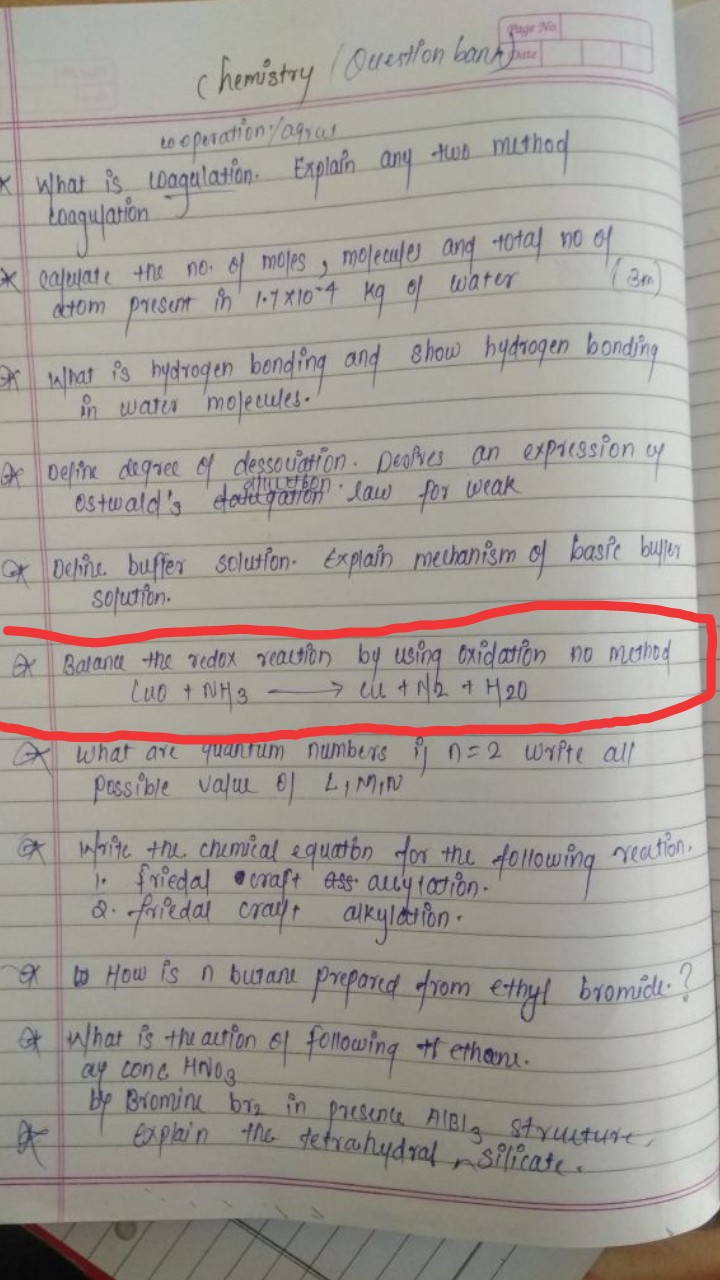 Page No.
Date
Chemistry (Question bank)
What is coagulation. Explain any two method
coagulation
Calculate the no. of moles, molecules and total no of
atom present in 1.7x10-4 kg of water (3m)
What is hydrogen bonding and show hydrogen bonding
in water molecules.
Define degree of dessociation. Derives an expression of
ostwald's dilution law for weak
Define buffer solution. Explain mechanism of basic buffer
solution.
Balance the redox reaction by using oxidation no method
CuO + NH3 ⟶ Cu + N2 + H2O
What are quantum numbers if n=2 write all
possible value of L,M,N
Write the chemical equation for the following reaction.
1. friedal craft acylation.
2. friedal craft alkylation.
How is n butane prepared from ethyl bromide.?
What is the action of following ethane.
a) conc HNO3
b) Bromine br2 in presence AlBl3
Explain the tetrahydral structure silicate.